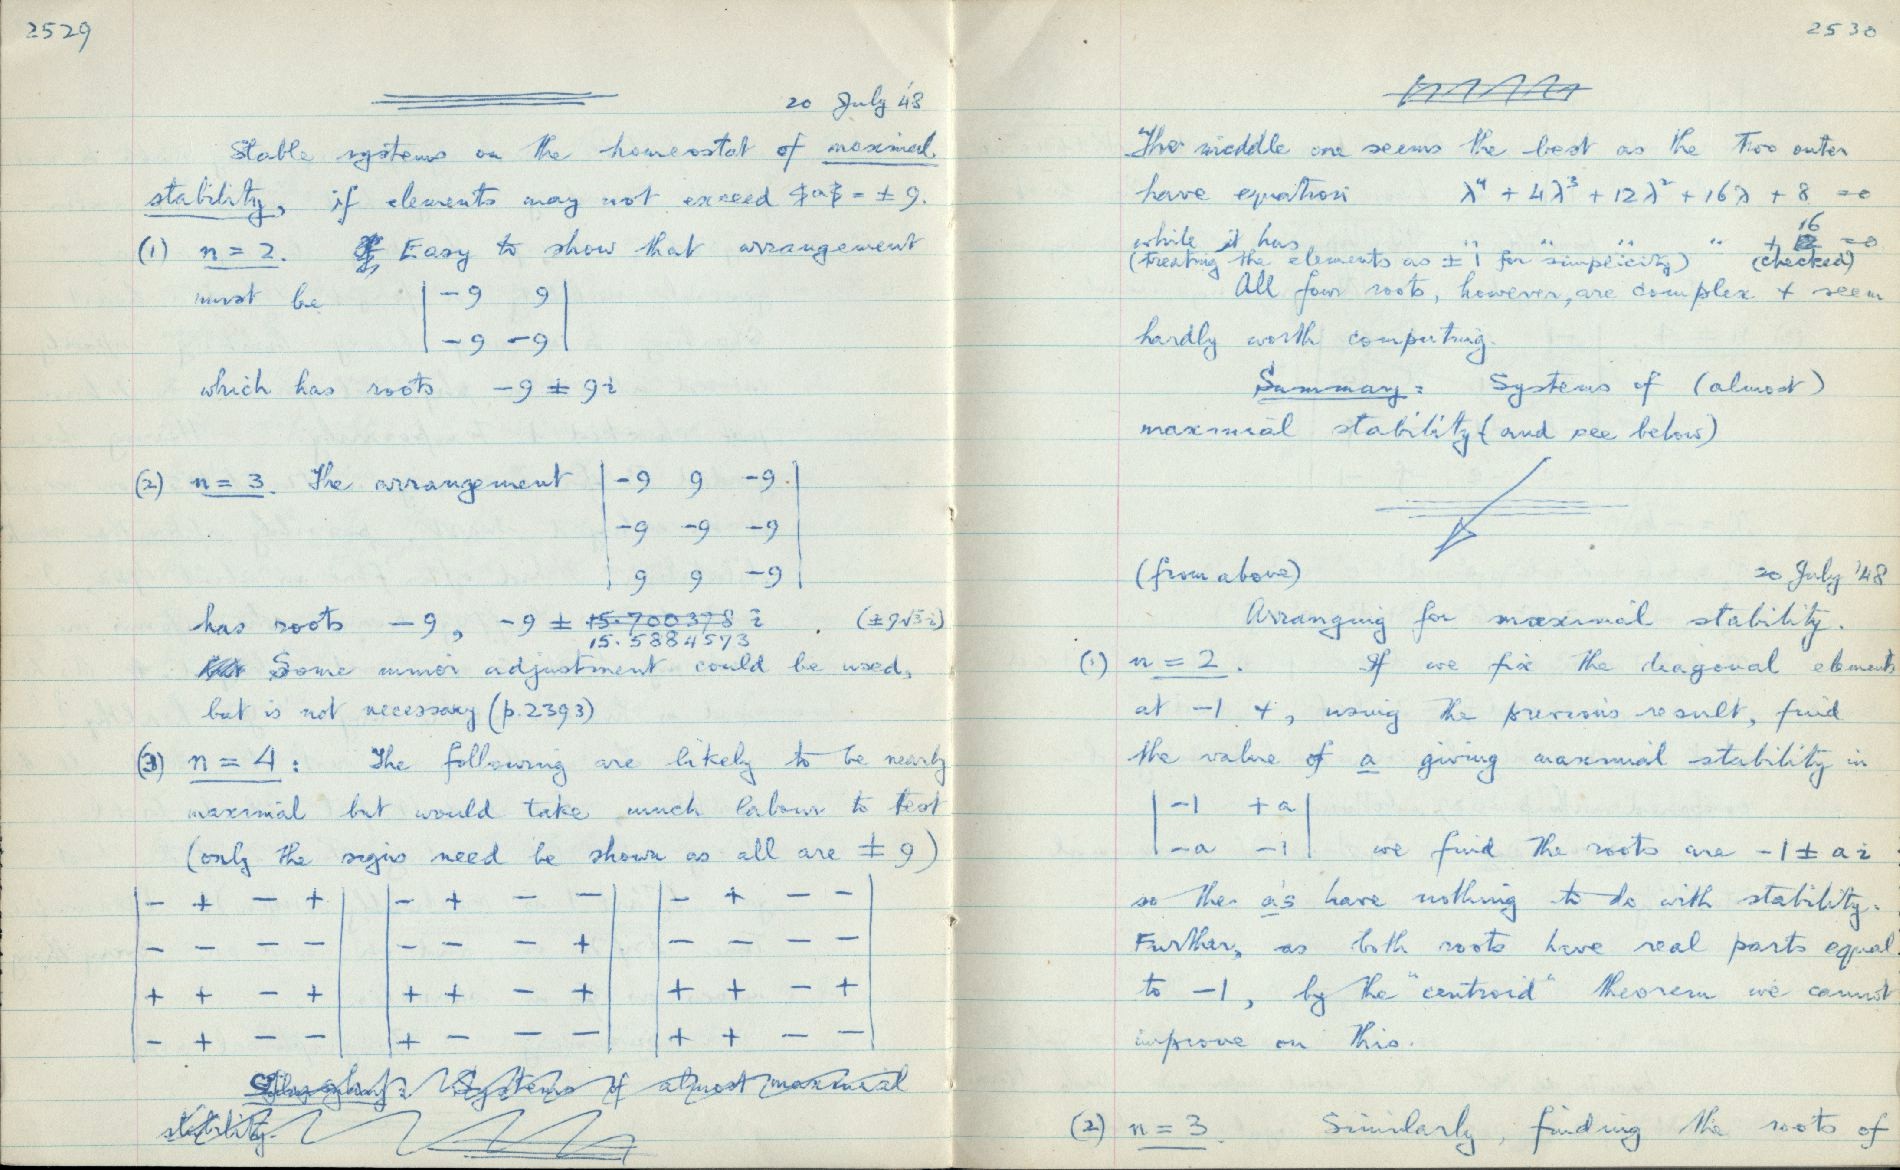 2529
20 July '48
Stable systems on the homeostat of maximal
stability, if elements may not exceed = ± 9.
(1) n = 2. Easy to show that arrangement
must be | -9 9 |
| -9 -9 |
which has roots -9 ± 9i
(2) n = 3. The arrangement | -9 9 -9 |
| -9 -9 -9 |
| 9 9 -9 |
has roots -9, -9 ± 15.700378 i (±9√3 i)
15.5884573
Some minor adjustment could be used,
but is not necessary (p. 2393)
(3) n = 4: The following are likely to be nearly
maximal but would take much labour to test
(only the signs need be shown as all are ± 9)
| - + - + | | - + - - | | - + - - |
| - - - - | | - - - + | | - - - - |
| + + - + | | + + - + | | + + - + |
| - + - - | | + - - - | | + + - - |
Summary: Systems of almost maximal
stability.
2530
The middle one seems the best as the two outer
have equation λ⁴ + 4λ³ + 12λ² + 16λ + 8 = 0
while it has " " " " + 16 = 0
(treating the elements as ± 1 for simplicity) (checked)
All four roots, however, are complex + seem
hardly worth computing.
Summary: Systems of (almost)
maximal stability (and see below)
(from above) 20 July '48
Arranging for maximal stability.
(1) n = 2. If we fix the diagonal elements
at -1 +, using the previous result, find
the value of a giving maximal stability in
| -1 +a |
| -a -1 | we find the roots are -1 ± ai
so the a's have nothing to do with stability.
Further, as both roots have real parts equal
to -1, by the "centroid" theorem we cannot
improve on this.
(2) n = 3 Similarly, finding the roots of